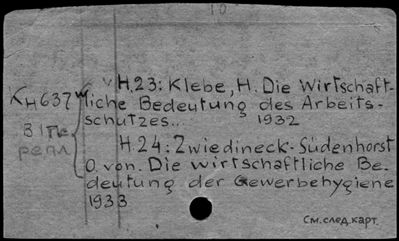 10
H.23: Klebe, H. Die Wirtschaft-
KH637 liche Bedeutung des Arbeits-
schutzes.. 1932
H.24: Zwiedineck-Südenhorst
O. von. Die wirtschaftliche Be-
deutung der Gewerbehygiene
1933
См. след. карт.